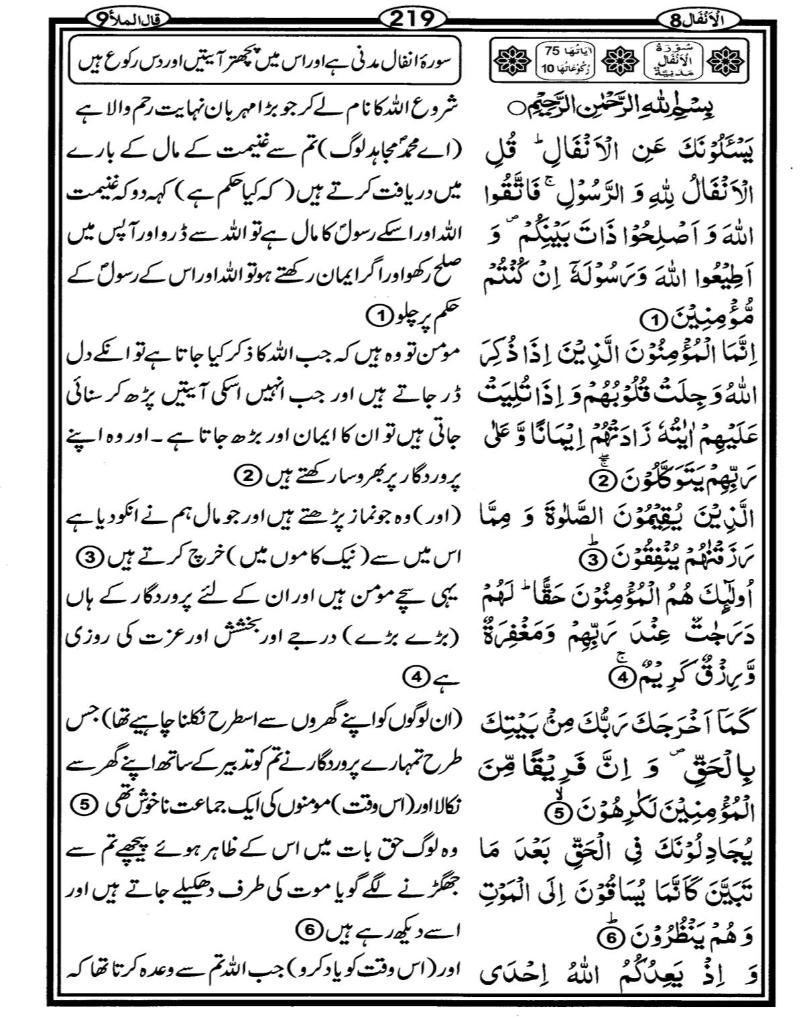 الانفال 8
219
قال الملأ 9
سُوْرَةُ الْاَنْفَالِ مَدَنِيَّةٌ
اٰيَاتُهَا 75
رُكُوْعَاتُهَا 10
سورۂ انفال مدنی ہے اور اس میں پچھتر آیتیں اور دس رکوع ہیں
بِسْمِ اللهِ الرَّحْمٰنِ الرَّحِيْمِ ○
شروع اللہ کا نام لے کر جو بڑا مہربان نہایت رحم والا ہے
يَسْـَٔلُوْنَكَ عَنِ الْاَنْفَالِ ؕ قُلِ
الْاَنْفَالُ لِلّٰهِ وَ الرَّسُوْلِ ۚ فَاتَّقُوا
اللهَ وَ اَصْلِحُوْا ذَاتَ بَيْنِكُمْ ۪ وَ
اَطِيْعُوا اللهَ وَرَسُوْلَهٗۤ اِنْ كُنْتُمْ
مُّؤْمِنِيْنَ ①
(اے محمدؐ مجاہد لوگ) تم سے غنیمت کے مال کے بارے
میں دریافت کرتے ہیں (کہ کیا حکم ہے) کہہ دو کہ غنیمت
اللہ اور اسکے رسولؐ کا مال ہے تو اللہ سے ڈرو اور آپس میں
صلح رکھو اور اگر ایمان رکھتے ہو تو اللہ اور اس کے رسولؐ کے
حکم پر چلو ①
اِنَّمَا الْمُؤْمِنُوْنَ الَّذِيْنَ اِذَا ذُكِرَ
اللهُ وَجِلَتْ قُلُوْبُهُمْ وَ اِذَا تُلِيَتْ
عَلَيْهِمْ اٰيٰتُهٗ زَادَتْهُمْ اِيْمَانًا وَّ عَلٰى
رَبِّهِمْ يَتَوَكَّلُوْنَ ②
مؤمن تو وہ ہیں کہ جب اللہ کا ذکر کیا جاتا ہے تو انکے دل
ڈر جاتے ہیں اور جب انہیں اسکی آیتیں پڑھ کر سنائی
جاتی ہیں تو ان کا ایمان اور بڑھ جاتا ہے ۔ اور وہ اپنے
پروردگار پر بھروسا رکھتے ہیں ②
الَّذِيْنَ يُقِيْمُوْنَ الصَّلٰوةَ وَ مِمَّا
رَزَقْنٰهُمْ يُنْفِقُوْنَ ③
(اور) وہ جو نماز پڑھتے ہیں اور جو مال ہم نے انکو دیا ہے
اس میں سے (نیک کاموں میں) خرچ کرتے ہیں ③
اُولٰٓئِكَ هُمُ الْمُؤْمِنُوْنَ حَقًّا ؕ لَهُمْ
دَرَجٰتٌ عِنْدَ رَبِّهِمْ وَمَغْفِرَةٌ
وَّ رِزْقٌ كَرِيْمٌ ④
یہی سچے مؤمن ہیں اور ان کے لئے پروردگار کے ہاں
(بڑے بڑے) درجے اور بخشش اور عزت کی روزی
ہے ④
كَمَاۤ اَخْرَجَكَ رَبُّكَ مِنْۢ بَيْتِكَ
بِالْحَقِّ ۪ وَ اِنَّ فَرِيْقًا مِّنَ
الْمُؤْمِنِيْنَ لَكٰرِهُوْنَ ⑤
(ان لوگوں کو اپنے گھروں سے اسطرح نکلنا چاہیے تھا) جس
طرح تمہارے پروردگار نے تم کو تدبیر کے ساتھ اپنے گھر سے
نکالا اور (اس وقت) مومنوں کی ایک جماعت ناخوش تھی ⑤
يُجَادِلُوْنَكَ فِى الْحَقِّ بَعْدَ مَا
تَبَيَّنَ كَاَنَّمَا يُسَاقُوْنَ اِلَى الْمَوْتِ
وَ هُمْ يَنْظُرُوْنَ ⑥
وہ لوگ حق بات میں اس کے ظاہر ہوئے پیچھے تم سے
جھگڑنے لگے گویا موت کی طرف دھکیلے جاتے ہیں اور
اسے دیکھ رہے ہیں ⑥
وَ اِذْ يَعِدُكُمُ اللهُ اِحْدَى
اور (اس وقت کو یاد کرو) جب اللہ تم سے وعدہ کرتا تھا کہ